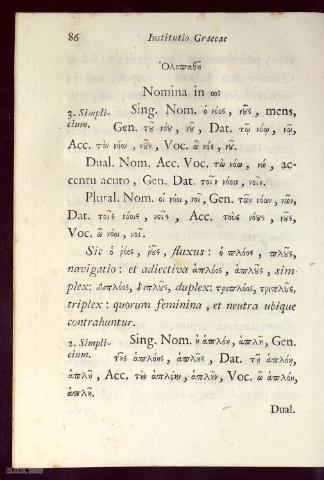 86 Institutio Graecae
Ὁλοπαθῆ
Nomina in οος
3. Simpli- Sing. Nom. ὁ νόος, νοῦς, mens,
cium. Gen. τοῦ νόου, νοῦ, Dat. τῷ νόῳ, νῷ,
Acc. τὸν νόον, νοῦν, Voc. ὦ νόε, νοῦ.
Dual. Nom. Acc. Voc. τὼ νόω, νώ, ac-
centu acuto, Gen. Dat. τοῖν νόοιν, νοῖν.
Plural. Nom. οἱ νόοι, νοῖ, Gen. τῶν νόων, νῶν,
Dat. τοῖς νόοις, νοῖς, Acc. τοὺς νόους, νοῦς,
Voc. ὦ νόοι, νοῖ.
Sic ὁ ῥόος, ῥοῦς, fluxus: ὁ πλόος, πλοῦς,
navigatio: et adiectiva ἁπλόος, ἁπλοῦς, sim-
plex: διπλόος, διπλοῦς, duplex: τριπλόος, τριπλοῦς,
triplex: quorum feminina, et neutra ubique
contrahuntur.
2. Simpli- Sing. Nom. ἡ ἁπλόη, ἁπλῆ, Gen.
cium. τῆς ἁπλόης, ἁπλῆς, Dat. τῇ ἁπλόῃ,
ἁπλῇ, Acc. τὴν ἁπλόην, ἁπλῆν, Voc. ὦ ἁπλόη,
ἁπλῆ.
Dual.